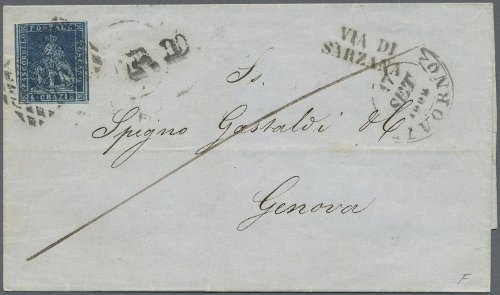 FRANCOBOLLO
POSTALE
TOSCANO
6 CRAZIE
P.D
VIA DI
SARZANA
LIVORNO
SET
Ss.
Spegno Gastaldi & C
Genova
F